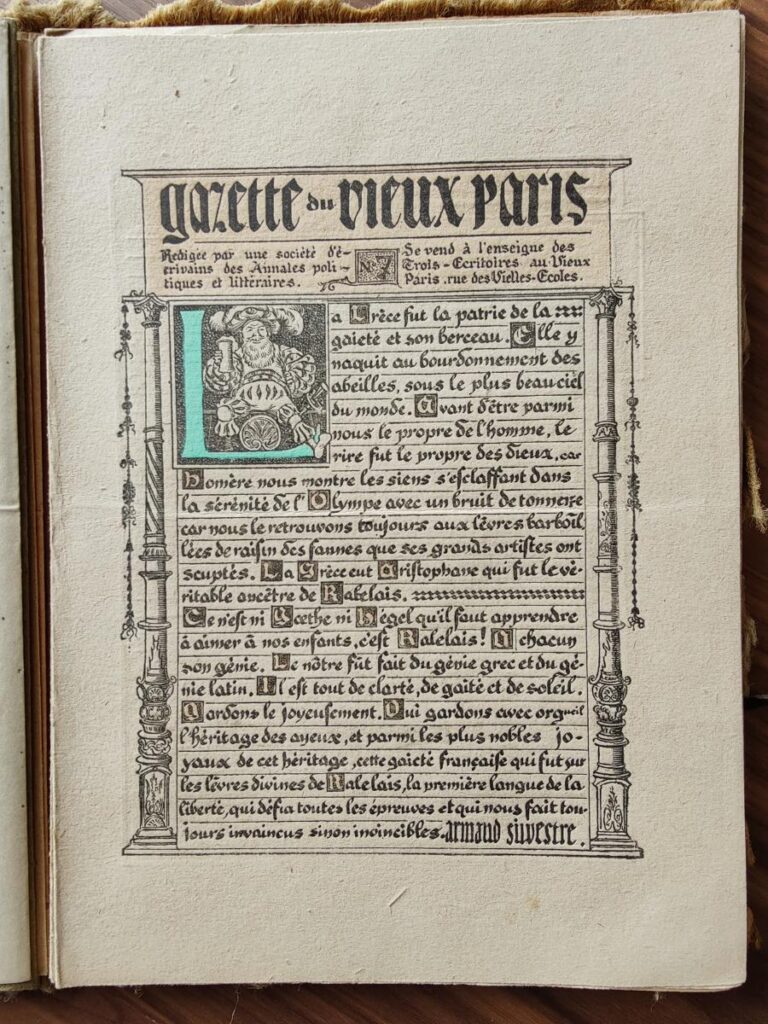 gazette du vieux paris
Redigée par une société d'é-
crivains des Annales poli-
tiques et littéraires.
No 7
Se vend à l'enseigne des
Trois-Ecritoires au Vieux
Paris, rue des Vielles-Ecoles.
La Grèce fut la patrie de la
gaieté et son berceau. Elle y
naquit au bourdonnement des
abeilles, sous le plus beau ciel
du monde. Avant d'être parmi
nous le propre de l'homme, le
rire fut le propre des dieux, car
Homère nous montre les siens s'esclaffant dans
la sérénité de l'Olympe avec un bruit de tonnerre
car nous le retrouvons toujours aux lèvres barbouil
lées de raisin des faunes que ses grands artistes ont
sculptés. La Grèce eut Aristophane qui fut le vé-
ritable ancêtre de Rabelais.
Ce n'est ni Goethe ni Hégel qu'il faut apprendre
à aimer à nos enfants, c'est Rabelais! A chacun
son génie. Le nôtre fut fait du génie grec et du gé-
nie latin. Il est tout de clarté, de gaité et de soleil.
Gardons le joyeusement. Oui gardons avec orgueil
l'héritage des ayeux, et parmi les plus nobles jo-
yaux de cet héritage, cette gaieté française qui fut sur
les lèvres divines de Rabelais, la première langue de la
liberté, qui défia toutes les épreuves et qui nous fait tou-
jours invaincus sinon invincibles. armand silvestre.